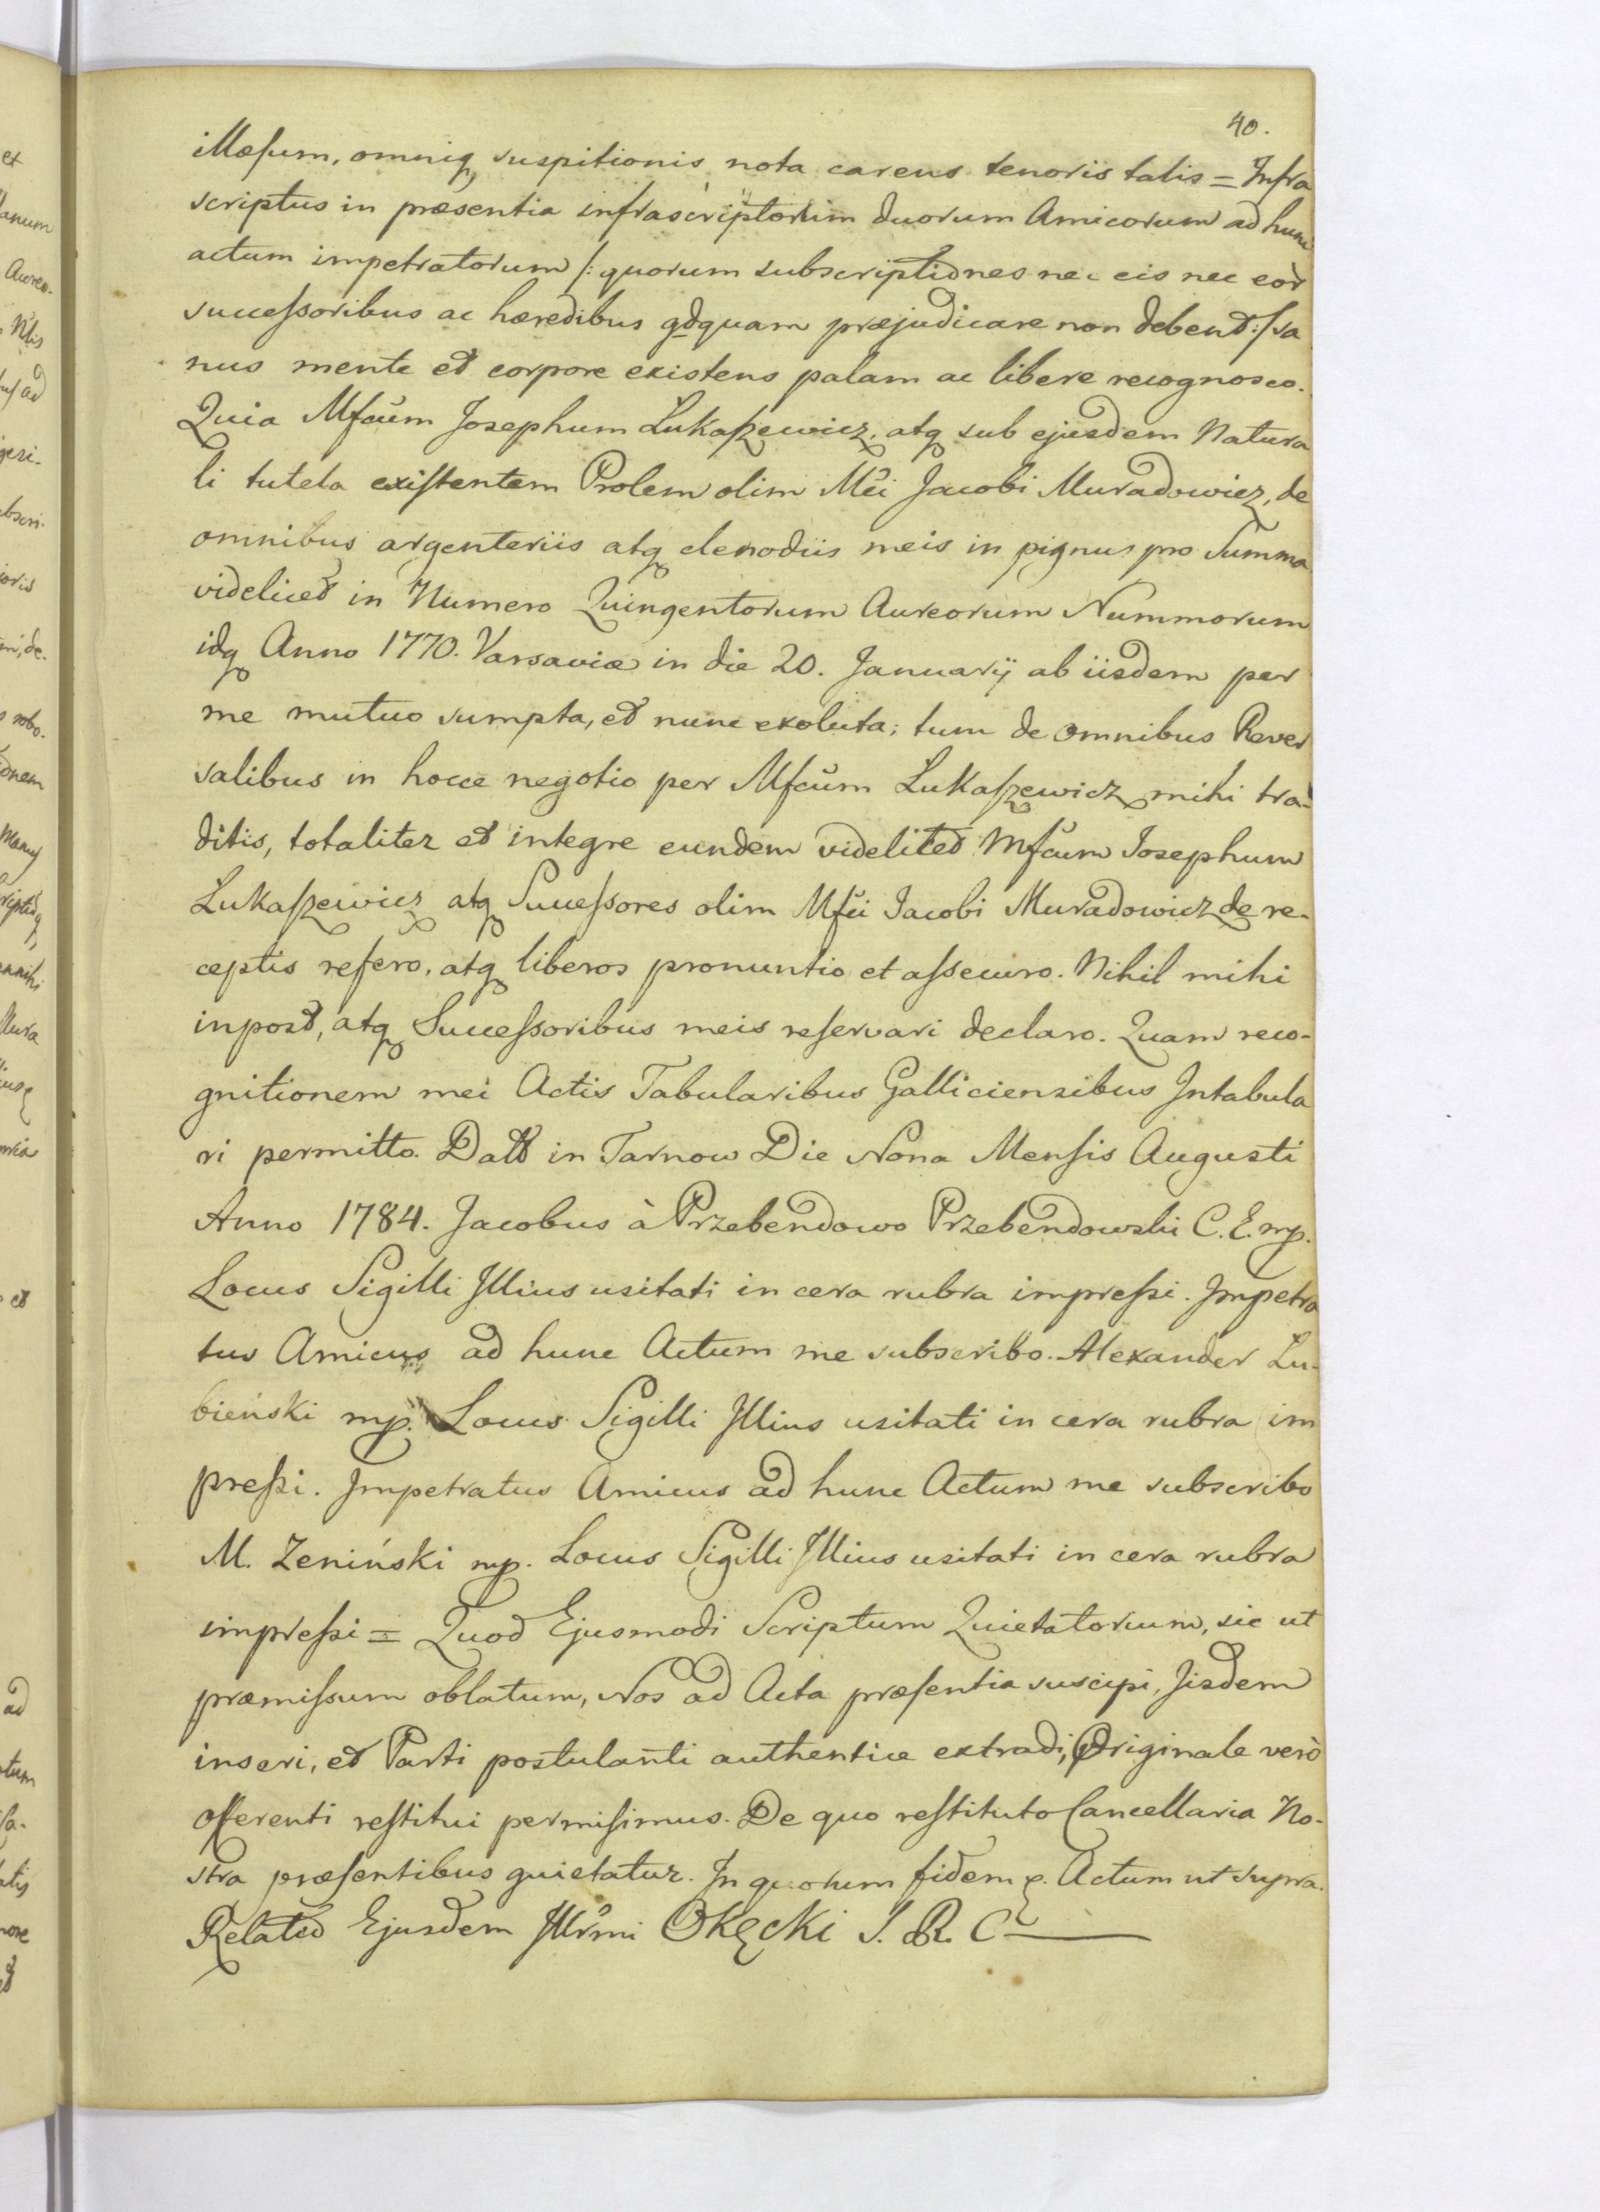 40.
illæsum, omniq suspitionis nota carens tenoris talis = Infra
scriptus in præsentia infrascriptorum duorum Amicorum ad hunc
actum impetratorum /: quorum subscriptiones nec eis nec eor
successoribus ac hæredibus qdquam præjudicare non debent :/ sa
nus mente et corpore existens palam ac libere recognosco.
Quia Mfcum Josephum Lukaszewicz, atq sub ejusdem Natura
li tutela existentem Prolem olim Mci Jacobi Muradowicz, de
omnibus argenteriis atq clenodiis meis in pignus pro Summa
videlicet in Numero Quingentorum Aureorum Nummorum
idq Anno 1770. Varsaviæ in die 20. Januarij ab iisdem per
me mutuo sumpta, et nunc exoluta; tum de omnibus Rever
salibus in hocce negotio per Mfcum Lukaszewicz mihi tra-
ditis, totaliter et integre eundem videlicet Mfcum Josephum
Lukaszewicz atq Successores olim Mfci Jacobi Muradowicz de re-
ceptis refero, atq liberos pronuntio et assecuro. Nihil mihi
inpost, atq Successoribus meis reservari declaro. Quam reco-
gnitionem mei Actis Tabularibus Galliciensibus Intabula
ri permitto. Datt in Tarnow Die Nona Mensis Augusti
Anno 1784. Jacobus à Przebendowo Przebendowski C. E. mp.
Locus Sigilli Illius usitati in cera rubra impressi. Impetra
tus Amicus ad hunc Actum me subscribo. Alexander Lu-
bieński mp. Locus Sigilli Illius usitati in cera rubra im
pressi. Impetratus Amicus ad hunc Actum me subscribo
M. Zeniński mp. Locus Sigilli Illius usitati in cera rubra
impressi = Quod Ejusmodi Scriptum Quietatorium, sic ut
præmissum oblatum, Nos ad Acta præsentia suscipi, Iisdem
inseri, et Parti postulanti authentice extradi, Originale verò
offerenti restitui permisimus. De quo restituto Cancellaria No-
stra præsentibus quietatur. In quorum fidem &. Actum ut supra.
Relatio Ejusdem Illrmi Okęcki S. R. C